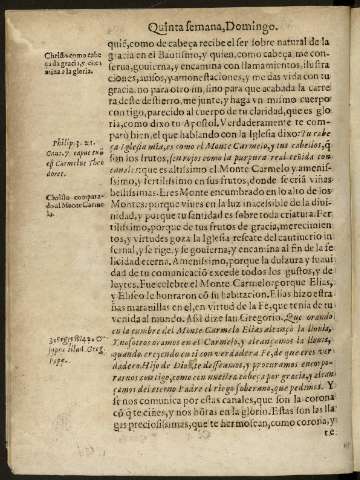 Quinta semana, Domingo.
quiẽ, como de cabeça recibe el ser sobre natural de la
gracia en el Bautismo, y quien, como cabeça me con-
serua, gouierna, y encamina con llamamientos, ilustra
ciones, auisos, y amonestaciones, y me das vida con tu
gracia. no para otro fin, sino para que acabada la carre
ra deste destierro, me junte, y haga vn mismo cuerpo
contigo, parecido al cuerpo de tu claridad, que es glo
ria, como dixo tu Apostol. Verdaderamente te com-
parò bien, el que hablando con la Iglesia dixo: Tu cabe
ça Iglesia mia, es como el Monte Carmelo, y tus cabellos, q̃
son los frutos, son rojos como la purpura real ceñida con
canales: que es altisimo el Monte Carmelo y amenis-
simo, y fertilissimo en sus frutos, donde se criã viñas
bellissimas. Eres Monte encumbrado en lo alto de los
Montes: porque viues en la luz inaccessible de la diui-
nidad, y porque tu santidad es sobre toda criatura. Fer
tilissimo, porque de tus frutos de gracia, merecimien-
tos, y virtudes goza la Iglesia rescate del cautiuerio in
fernal, y se rige, y se gouierna, y encamina al fin de la fe
licidad eterna. Amenissimo, porque la dulzura y suaui
dad de tu comunicaciõ excede todos los gustos, y de
leytes. Fue celebre el Monte Carmelo: porque Elias,
y Eliseo le honraron cõ su habitacion. Elias hizo estra
ñas marauillas en el, en virtud de la Fe, que tenia de tu
venida al mundo. Assi dize san Gregorio. Que orando
en la cumbre del Monte Carmelo Elias alcançò la lluuia,
Y nosotros oramos en el Carmelo, y alcançamos la lluuia,
quando creyendo en ti con verdadera Fe, de que eres ver
dadero Hijo de Dios, te desseamos, y procuramos encor-
rarnos contigo, como con nuestra cabeça por gracia, y alcan
çamos del eterno Padre el riego soberano, que pedimos. Y
se nos comunica por estas canales, que son la corona
cõ q̃ te ciñes, y nos hõras en la gloria. Estas son las lla
gas preciosissimas, que te hermosean, como corona, y
te
Christo como cabe
ça da gracia, y enca
mina a la gloria.
Philip. 3. 21.
Cant. 7. caput tuũ
ut Carmelus Theo
doret.
Christo compara-
do al Monte Carme
lo.
3. Reg. 18. 42. O
rapat illud. Greg.
Pape.